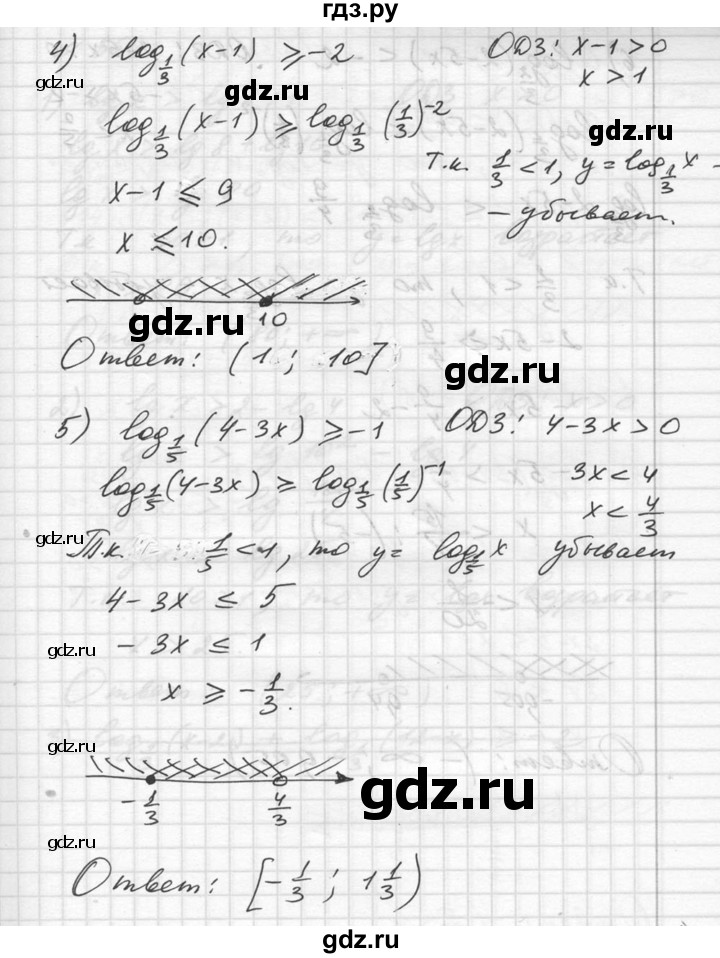 гдз.ру
4) log_{1/3}(x-1) ≥ -2   ОДЗ: x-1>0
x>1
gdz.ru
gdz.ru
log_{1/3}(x-1) ≥ log_{1/3}(1/3)^{-2}
gdz.ru
Т.к. 1/3 < 1, y = log_{1/3} x -
x-1 ≤ 9
- убывает.
x ≤ 10.
gdz.ru
10
gdz.ru
Ответ: (1; 10]
gdz.ru
gdz.ru
5) log_{1/5}(4-3x) ≥ -1   ОДЗ: 4-3x>0
3x<4
log_{1/5}(4-3x) ≥ log_{1/5}(1/5)^{-1}
x < 4/3
gdz.ru
Т.к. 1/5 < 1, то y = log_{1/5} x убывает
4-3x ≤ 5
-3x ≤ 1
gdz.ru
gdz.ru
x ≥ -1/3.
gdz.ru
gdz.ru
-1/3   4/3
gdz.ru
gdz.ru
Ответ: [-1/3; 1 1/3)
gdz.ru
gdz.ru